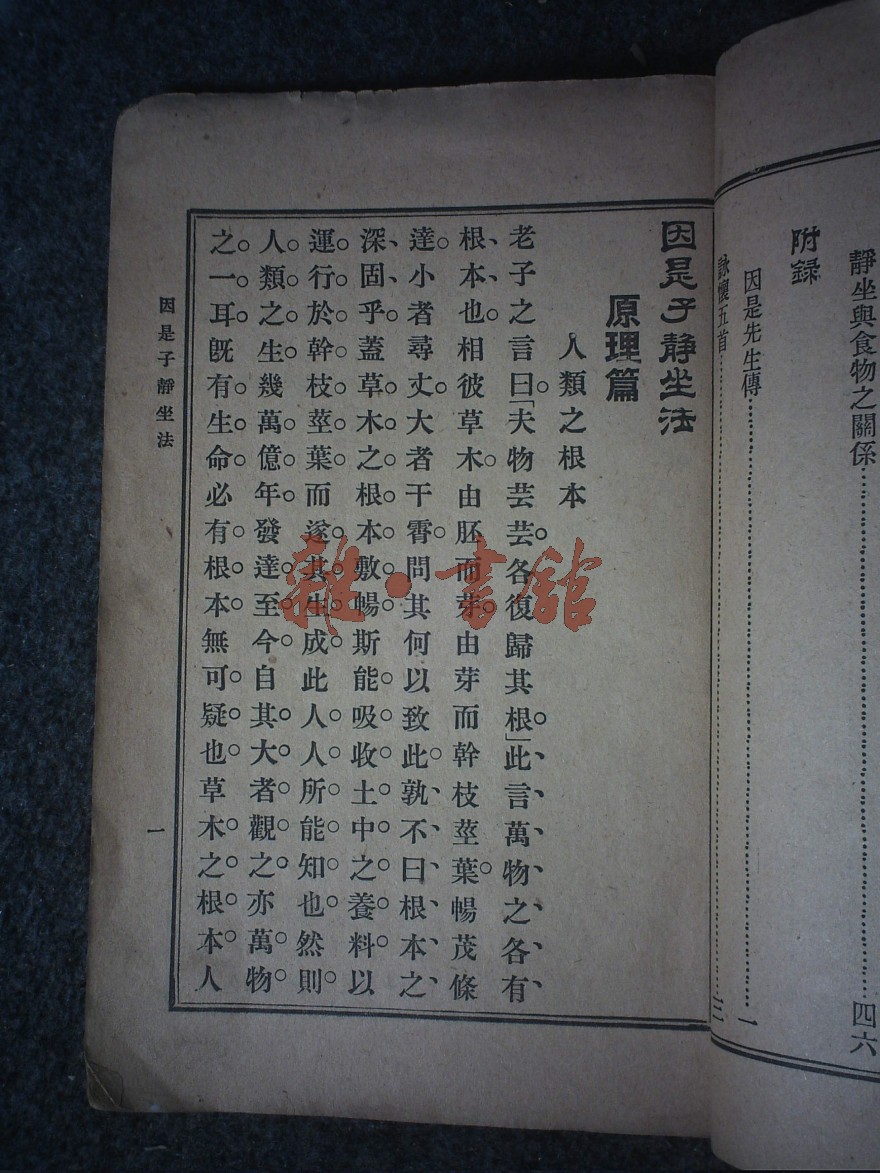 靜坐與食物之關係……………………四六
附録
因是先生傳……………………一
詠懷五首……………………三
因是子靜坐法
原理篇
人類之根本
老子之言曰「夫物芸芸各復歸其根」此言萬物之各有
根本也相彼草木由胚而芽由芽而幹枝莖葉暢茂條
達小者尋丈大者干霄問其何以致此孰不曰根本之
深固乎蓋草木之根本敷暢斯能吸收土中之養料以
運行於幹枝莖葉而遂其生成此人人所能知也然則
人類之生幾萬億年發達至今自其大者觀之亦萬物
之一耳旣有生命必有根本無可疑也草木之根本人
因是子靜坐法
一
雜·書館